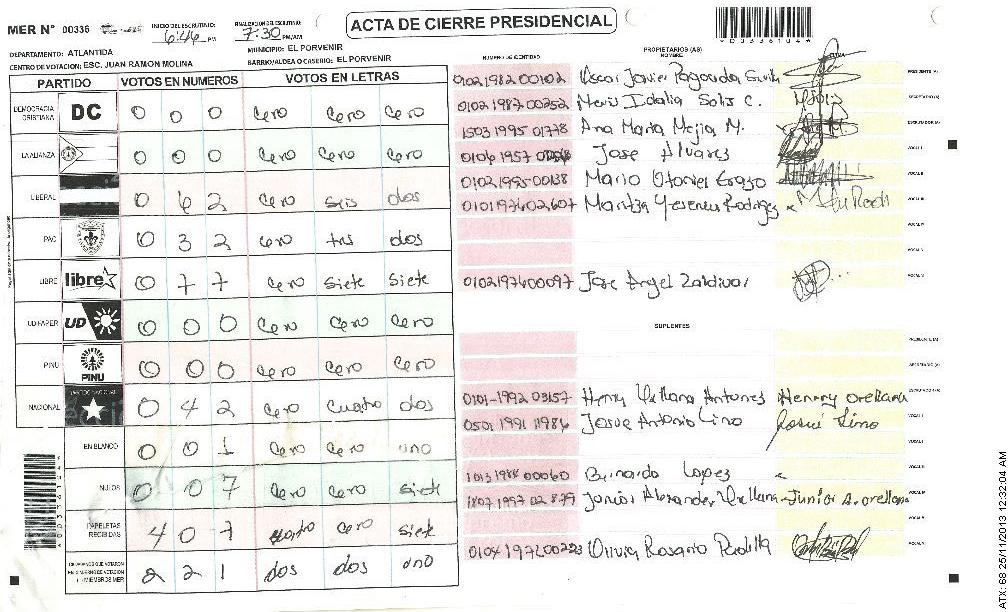 MER N° 00336 INICIO DEL ESCRUTINIO: 6:46 PM FINALIZACION DEL ESCRUTINIO: 7:30 PM/AM ACTA DE CIERRE PRESIDENCIAL
DEPARTAMENTO: ATLANTIDA MUNICIPIO: EL PORVENIR
CENTRO DE VOTACION: ESC. JUAN RAMON MOLINA BARRIO/ALDEA O CASERIO: EL PORVENIR
PARTIDO VOTOS EN NUMEROS VOTOS EN LETRAS
DEMOCRACIA CRISTIANA DC 0 0 0 cero cero cero
LA ALIANZA 0 0 0 cero cero cero
LIBERAL 0 6 2 cero seis dos
PAC 0 3 2 cero tres dos
LIBRE libre 0 7 7 cero siete siete
UD-FAPER UD 0 0 0 cero cero cero
PINU PINU 0 0 0 cero cero cero
NACIONAL 0 4 2 cero cuatro dos
EN BLANCO 0 0 1 cero cero uno
NULOS 0 0 7 cero cero siete
PAPELETAS RECIBIDAS 4 0 7 cuatro cero siete
2 2 1 dos dos uno
NUMERO DE IDENTIDAD PROPIETARIOS (AS) NOMBRE FIRMA
0102 1982 00102 Oscar Javier PRESIDENTE (A)
0102 1987 00252 Solis C. SECRETARIO (A)
1503 1995 01778 Ana Maria Mejia M. ESCRUTADOR (A)
0106 1957 Jose Alvares VOCAL I
0102 1995 00138 Mario Otoniel VOCAL II
0101 1976 02607 Maritza Yesenia Rodriguez VOCAL III
VOCAL IV
VOCAL V
0102 1976 00097 Jose Angel Zaldivar
SUPLENTES
PRESIDENTE (A)
SECRETARIO (A)
0101-1992 03157 Henry Orellana Antunes Henrry orellana ESCRUTADOR (A)
0501 1991 11986 Josue Antonio Lino Josué Lino VOCAL I
VOCAL II
1984 00060 Bernardo Lopez
1807 1997 02899 Junior Alexander Orellana Junior A. orellana
0104 1972 00223 Rosario Padilla
ATX: 68 25/11/2013 12:32:04 AM